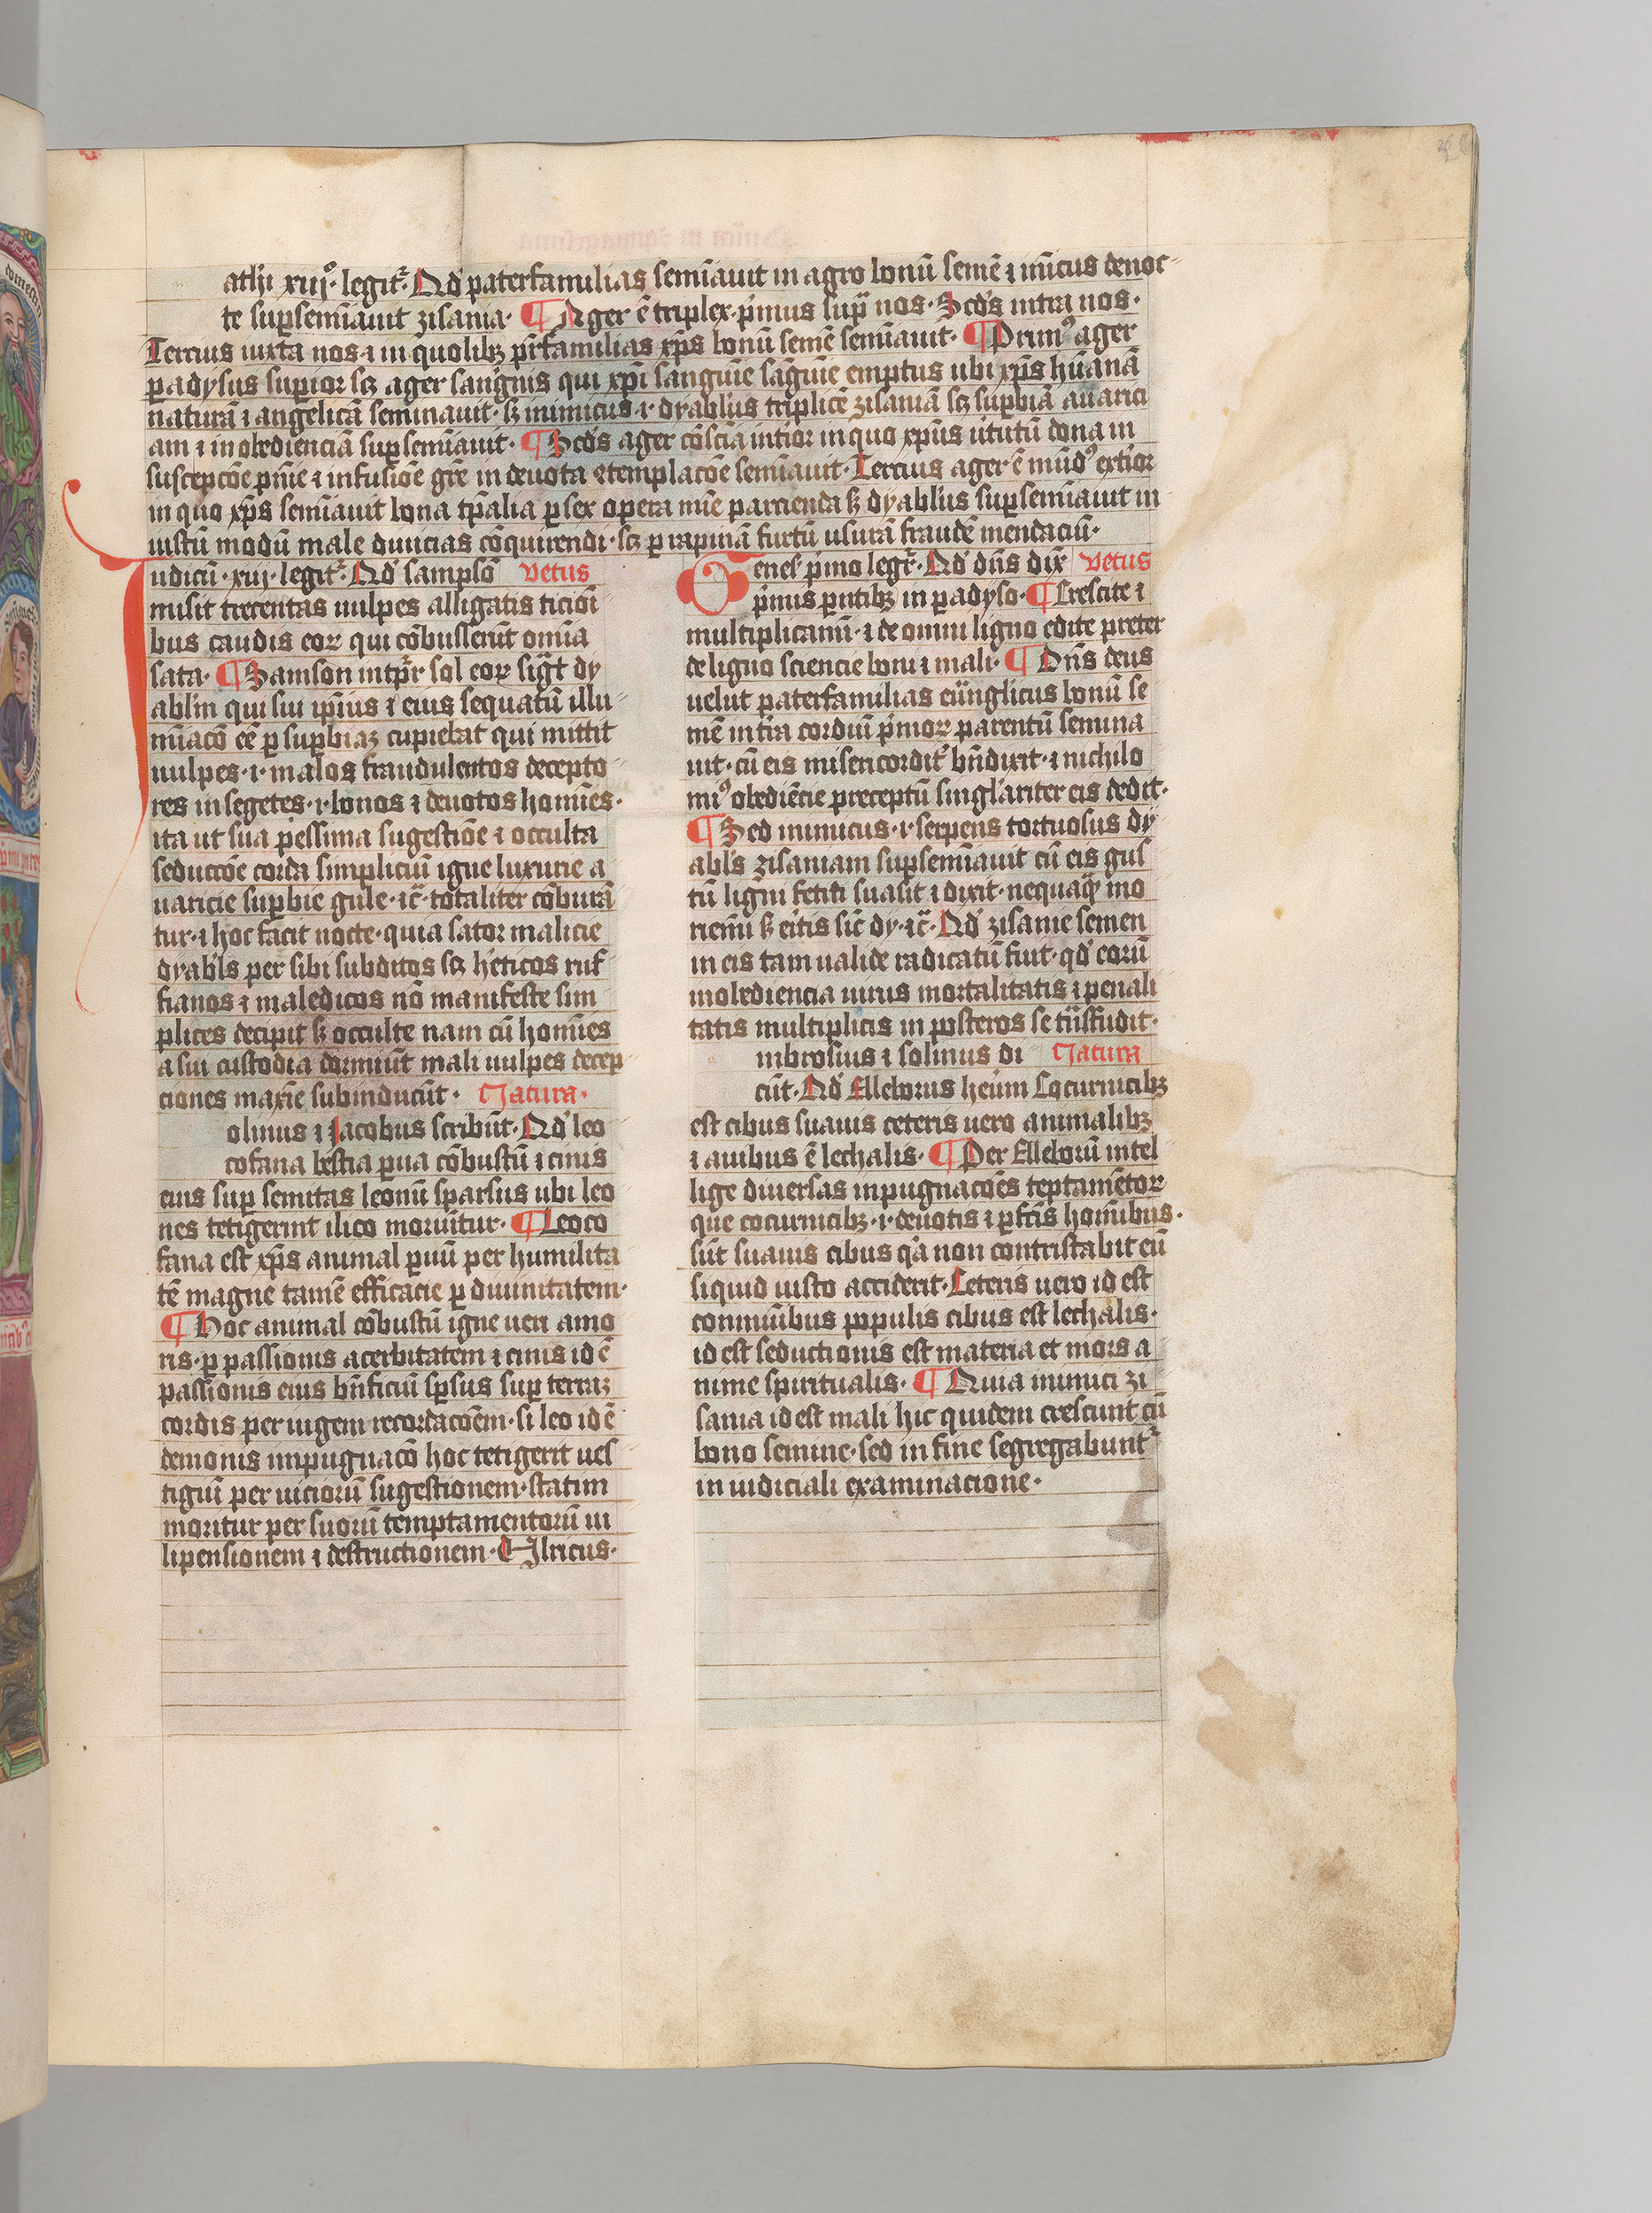 athi xiijͦ· legit᷑· Qd̕ paterfamilias semīauit in agro bonū semē ⁊ īmicus de noc
te suꝑsemīauit zisania· ¶ Ager ē triplex· p̕mus supͣ nos· Scd̕s intra nos·
Tercius iuxta nos· ⁊ in q̄libꝫ pr̄familias xp̄s bonū semē semīauit· ¶ Primꝰ ager
ꝑadysus suꝑior scꝫ ager sangnis qui xp̄i sanguīe sāguīe emptus ubi xp̄s hūanā
naturā ⁊ angelicā seminauit· sꝫ inimicus· i· dyablus triplicē zisaniā scꝫ suꝑbiā auarici
am ⁊ inobedienciā suꝑsemīauit· ¶ Scd̕s ager cōsciā int̕ior in quo xp̄us u̕tutū dona in
suscepcōe pn̄ie ⁊ infusiōe gr̄e in deuota ꝯtemplacōe semīauit· Tercius ager ē mūdꝰ ext̕ior
in quo xp̄s semīauit bona tp̄alia ꝑ sex opera mīe parcienda sꝫ dyablus suꝑsemīauit in
iustū modū male diuicias cōquirendi· scꝫ ꝑ rapinā furtū usurā fraudē mendaciū·
Iudicū· xiij· legit᷑· Qd̕ sampsō vetus
misit trecentas uulpes alligatis ticiōi
bus caudis eoꝝ qui cōbusserūt omīa
sata· ¶ Samson intp̕r sol eoꝝ sig̕t dy
ablm qui sui ip̄ius ⁊ eius sequatū illu
mīacō eē ꝑ suꝑbiaꝫ cupiebat qui mittit
uulpes· i· malos fraudulentos decepto
res in segetes· i· bonos ⁊ deuotos homīes·
ita ut sua pessima sugestiōe ⁊ occulta
seduccōe corda simpliciū igne luxurie a
uaricie suꝑbie gule· ⁊c̄· totaliter cōburā
tur· ⁊ hoc facit nocte· quia sator malicie
dyabl̕s per sibi subditos scꝫ h̕eticos ruf
fianos ⁊ maledicos nō manifeste sim
plices decipit sꝫ occulte nam cū homīes
a sui custodia dormiūt mali uulpes decep
ciones maxīe subinducūt· Natura·
olinus ⁊ Jacobus scribūt· Qd̕ leo
cofana bestia ꝑua cōbustū ⁊ cinis
eius suꝑ semitas leonū sparsus ubi leo
nes tetigerint ilico moriūtur· ¶ Leoco
fana est xp̄s animal ꝑuū per humilita
tē magne tamē efficacie ꝑ diuinitatem·
¶ Hoc animal cōbustū igne ueri amo
ris· ꝑ passionis acerbitatem ⁊ cinis id ē
passionis eius bn̄ficiū sp̕sus suꝑ terraꝫ
cordis per iugem recordacōem· si leo id ē
demonis impugnacō hoc tetigerit ues
tigiū per uiciorū sugestionem· statim
moritur per suorū temptamentorū ui
lipensionem ⁊ destructionem· Ulricus·
Genes̕ p̕mo leg̕t᷑· Qd̕ dn̄s dix̕ vetus
p̕mus ꝑn̄tibꝫ in ꝑadyso· ¶ Crescite ⁊
multiplicamī· ⁊ de omni ligno edite preter
de ligno sciencie boni ⁊ mali· ¶ Dn̄s deus
uelut paterfamilias euāglicus bonū se
mē in tr̄a cordiū p̕moꝝ parentū semina
uit· cū eis misericordit̕ bn̄dixit· ⁊ nichilo
miꝰ obediēcie preceptū singlariter eis dedit·
¶ Sed inimicus· i· serpens tortuosus dy
abl̕s zisaniam suꝑsemīauit cū eis gus
tū ligni fetiti suasit ⁊ dixit· nequaq̄ mo
riemī sꝫ eitis sic̄ dy· ⁊c̄· Qd̕ zisanie semen
in eis tam ualide radicatū fuit· qd̕ eorū
inobediencia uirus mortalitatis ⁊ penali
tatis multiplicis in posteros se tūsfudit·
mbrosius ⁊ solinus di Natura
cūt· Qd̕ Elleborus h̕eum Cocurnicibꝫ
est cibus suauis ceteris uero animalibꝫ
⁊ auibus ē lechalis· ¶ Per Elleborū intel
lige diuersas inpugnacōes teptamētoꝝ
que cocurnicibꝫ· i· deuotis ⁊ ꝑfc̄is homībus·
sūt suauis cibus q̕a non contristabit eū
siquid iusto acciderit· Ceteris uero id est
commūibus populis cibus est lechalis·
id est seductionis est materia et mors a
nime spiritualis· ¶ Quia inimici zi
sania id est mali hic quidem crescunt cū
bono semine· sed in fine segregabunt᷑
in iudiciali examinacione·